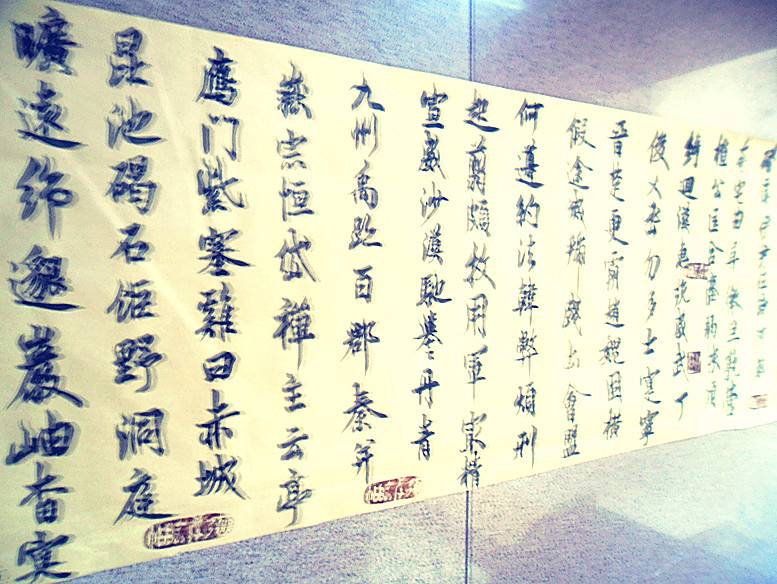 奄宅曲阜微旦孰營
桓公匡合濟弱扶傾
綺迴漢惠說感武丁
俊乂密勿多士寔寧
晉楚更霸趙魏困橫
假途滅虢踐土會盟
何遵約法韓弊煩刑
起翦頗牧用軍最精
宣威沙漠馳譽丹青
九州禹跡百郡秦并
嶽宗恒岱禪主云亭
鴈门紫塞雞田赤城
昆池碣石鉅野洞庭
曠遠綿邈巖岫杳冥